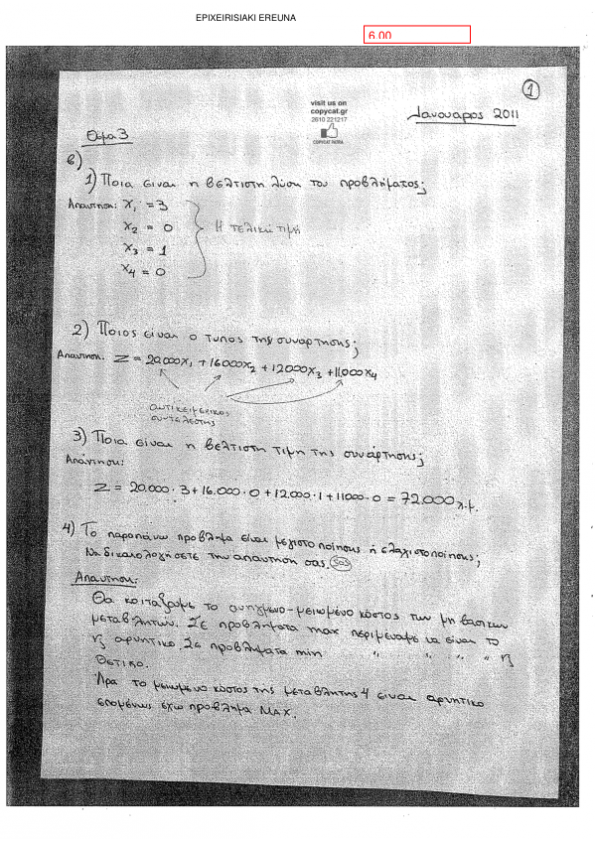 EPIXEIRISIAKI EREUNA
6.00
1
visit us on
copycat.gr
2610 221217
COPYCAT PATRA
Ιανουαρος 2011
Θεμα 3
β)
1) Ποια ειναι η βελτιστη λυση του προβληματος;
Απαντηση: X1 = 3
X2 = 0
X3 = 1
X4 = 0
Η τελικη τιμη
2) Ποιος είναι ο τυπος της συναρτησης;
Απαντηση. Z = 20.000X1 + 16000X2 + 12000X3 + 11.000X4
αντικειμενικος
συντελεστης
3) Ποια ειναι η βελτιστη τιμη της συνάρτησης;
Απάντηση:
Z = 20.000 · 3 + 16.000 · 0 + 12.000 · 1 + 11000 · 0 = 72.000 χ.μ.
4) Το παραπάνω προβλημα ειναι μεγιστοποίησης ή ελαχιστοποίησης;
Να δικαιολογήσετε την απαντηση σας. SOS
Απαντηση:
Θα κοιτάξουμε το ανηγμενο - μειωμένο κόστος των μη βασικων
μεταβλητων. Σε προβληματα max περιμέναμε να είναι το
αρνητικο. Σε προβληματα min " " " "
θετικο.
Άρα το μειωμενο κοστος της μεταβλητης 4 ειναι αρνητικο
επομενως εχω προβλημα MAX.